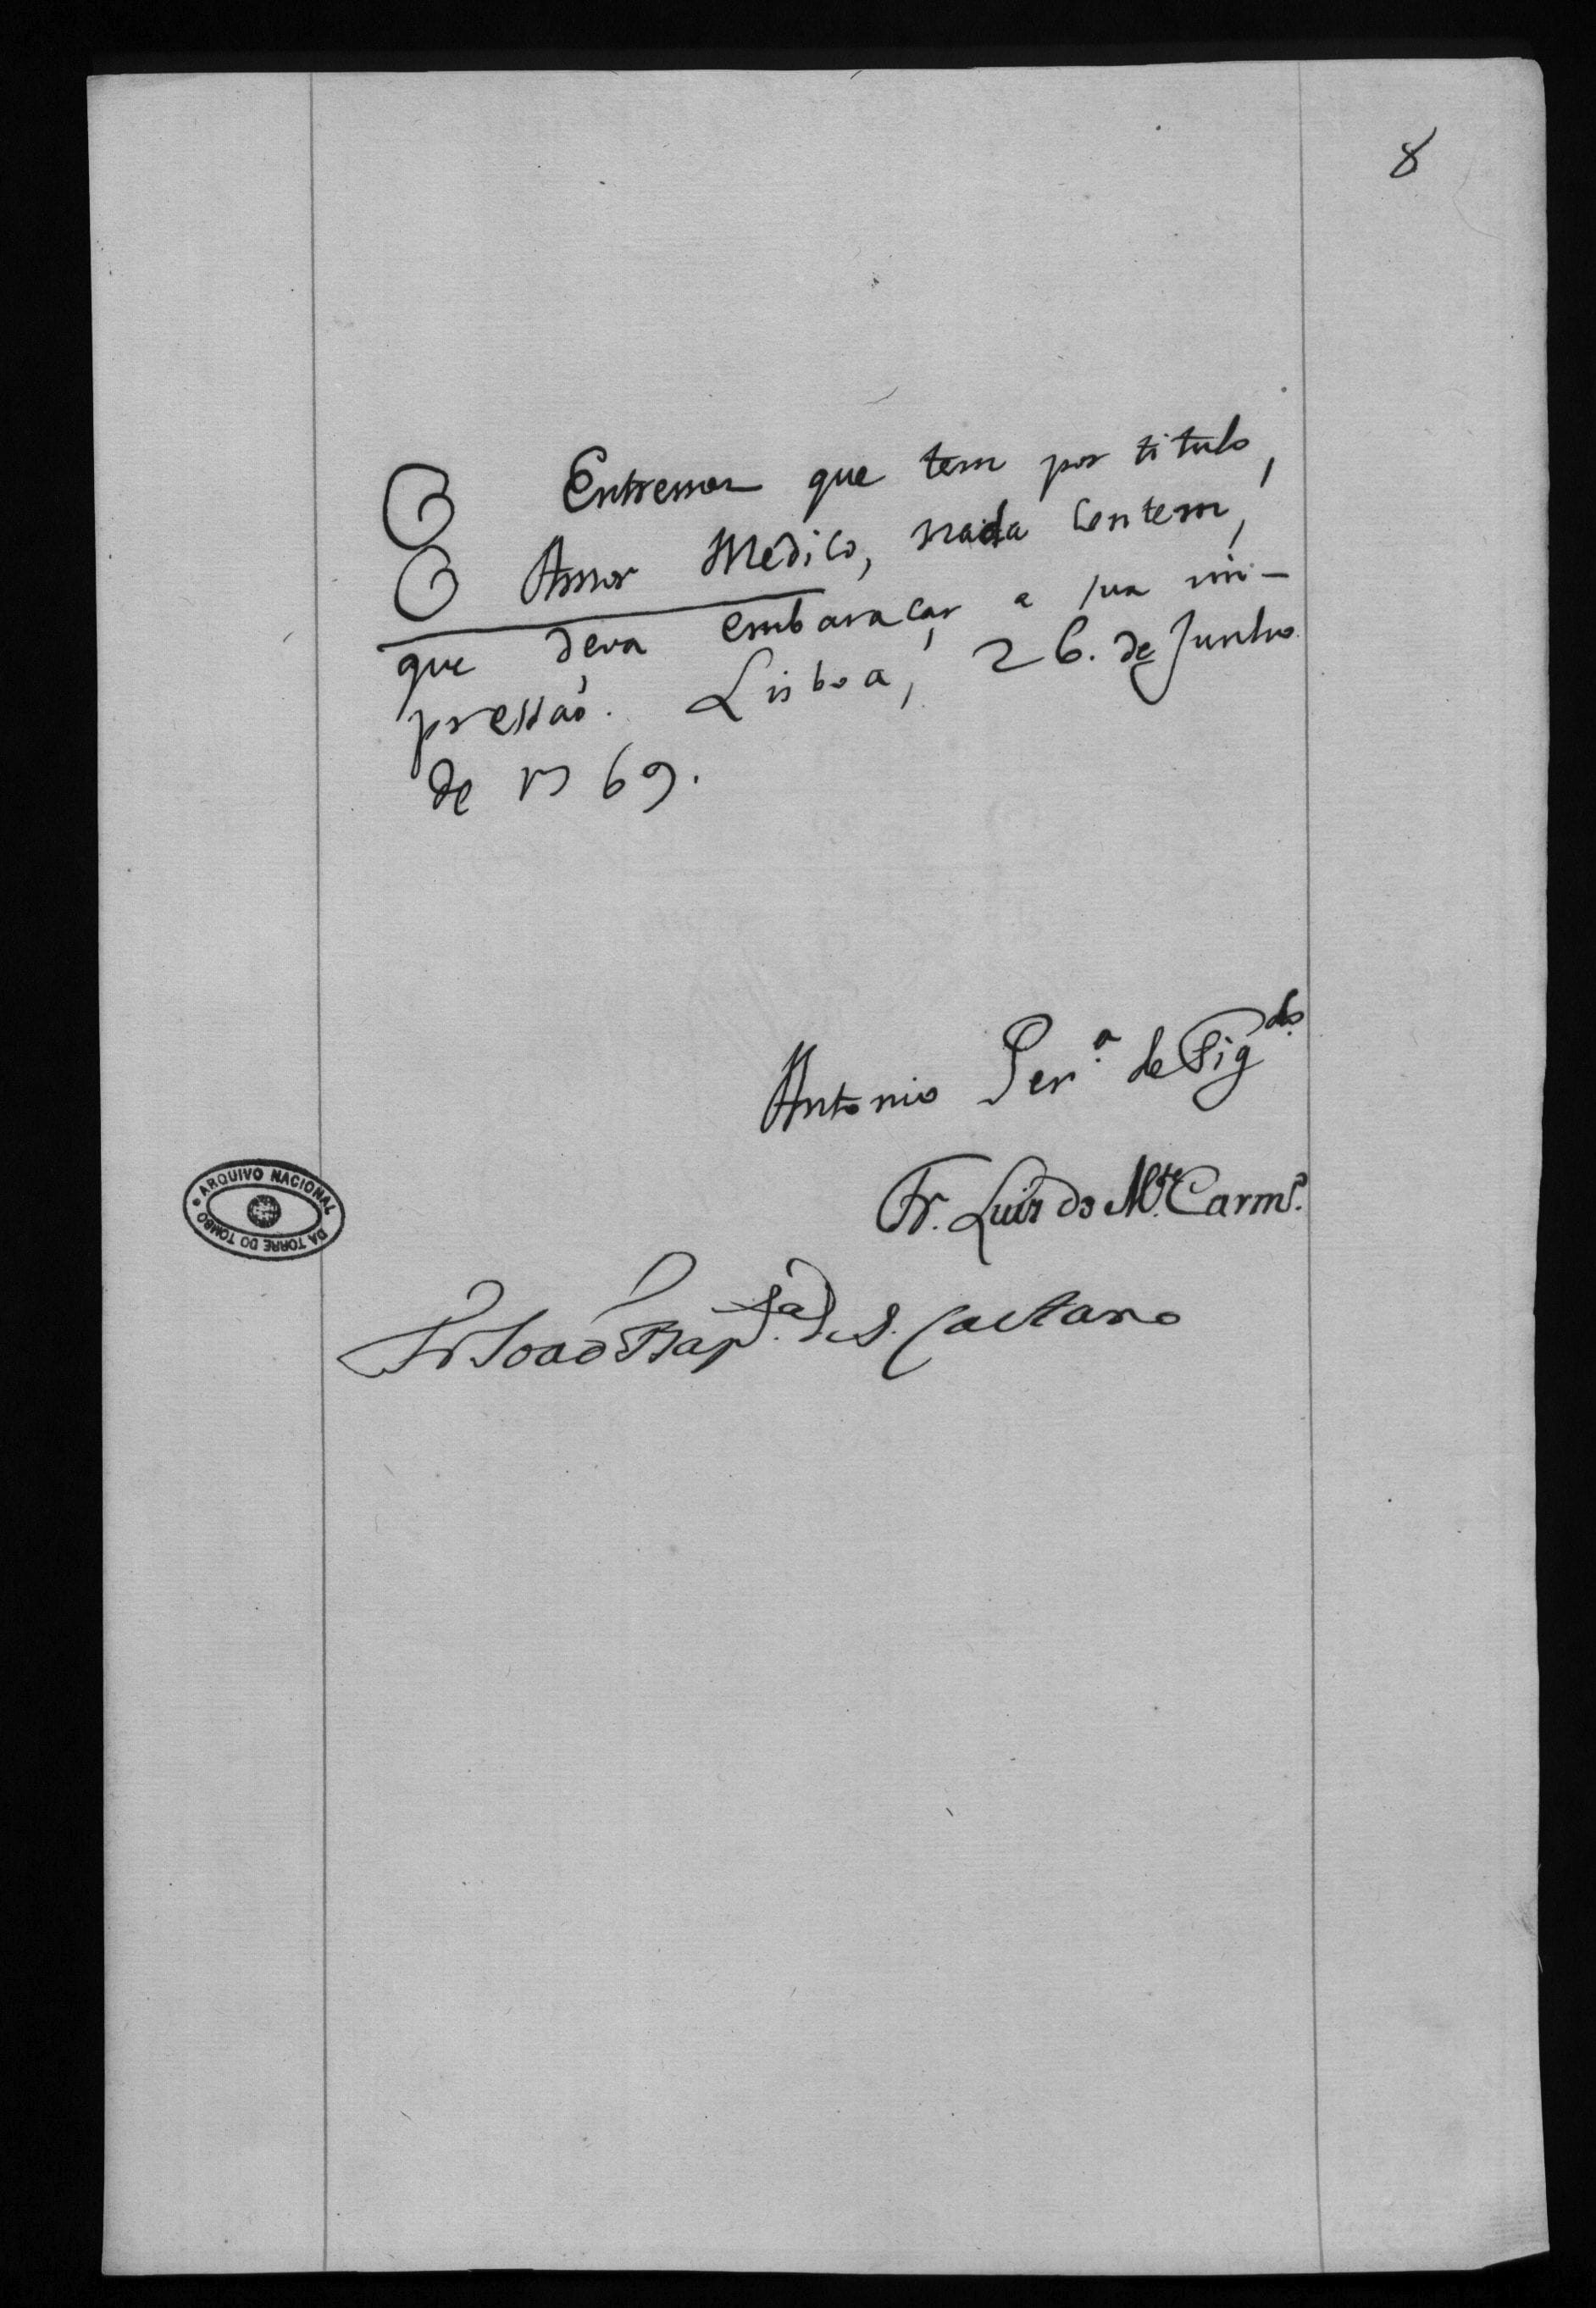 8
O Entremez que tem por titulo,
O Amor Medico, nada contem,
que deva embaraçar a sua im-
pressaõ. Lisboa, 26. de Junho
de 1769.
Antonio Per.ª de Fig.do
Fr. Luis do M.te Carm.o
ARQUIVO NACIONAL DA TORRE DO TOMBO
Fr Joaõ Bap.ta de S. Caetano